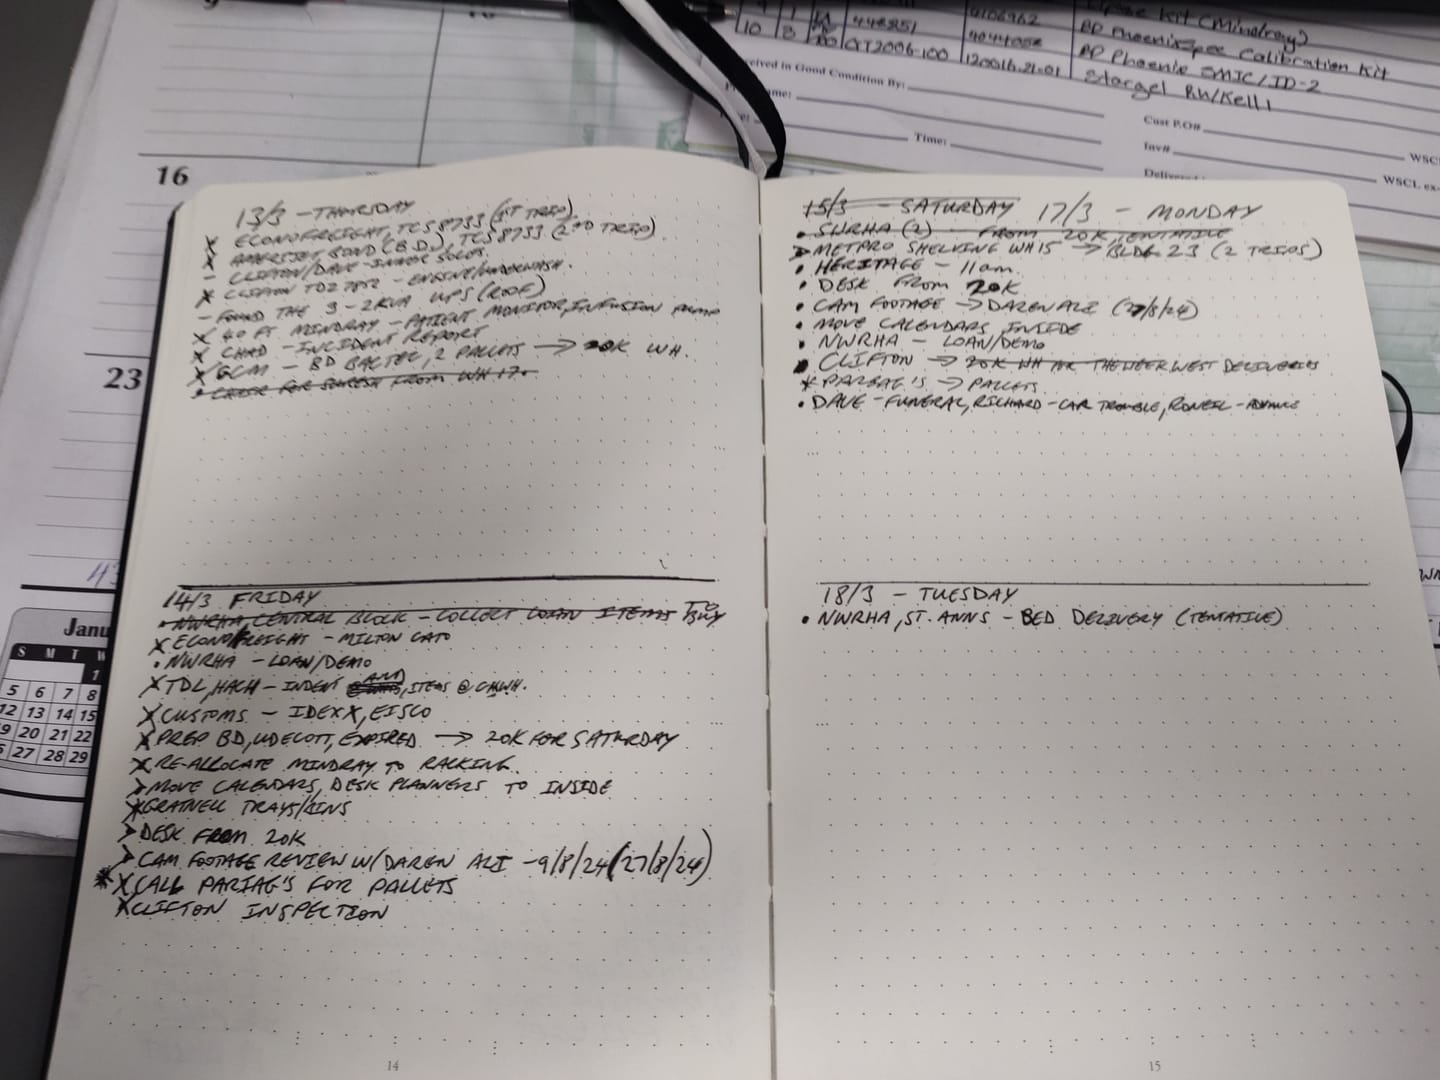 9
10
10 3 GT2006-100 120016.21.01
448851 4106962
4044008
Kit (Mindray)
BD PhoenixSpec Calibration Kit
BD Phoenix SMIC/ID-2
Stargel RW/Kell 1
ceived in Good Condition By:
Time:
Cust P.O#
Inv#
WSCL ex-
16
23
13/3 - THURSDAY
X ECONOFREIGHT, TCS 8733 (1ST TRIP)
X AMERIJET BOND (B.D.), TCS 8733 (2ND TRIP)
- CLIFTON/DAVE - INNER SOLES
X CLIFTON TDZ 7072 - ENGINE/UNDERWASH.
- FOUND THE 9 - 2KVA UPS (ROOF)
X 40 FT MINDRAY - PATIENT MONITOR, INFUSION PUMP
X CHAD - INCIDENT REPORT
X GCM - BD BACTEC, 2 PALLETS → 20K WH.
• CHECK FOR SURESH FROM WH 17.
14/3 FRIDAY
• NWRHA, CENTRAL BLOCK - COLLECT LOAN ITEMS TO BUY
X ECONOFREIGHT - MILTON CATO
• NWRHA - LOAN/DEMO
X TDL, HACH - INDENT AMD, ITEMS @ CHWH.
X CUSTOMS - IDEXX, EISCO
X PREP BD, UDECOTT, EXPIRED → 20K FOR SATURDAY
X RE-ALLOCATE MINDRAY TO RACKING.
> MOVE CALENDARS, DESK PLANNERS TO INSIDE
X GRATNELL TRAYS/BINS
> DESK FROM 20K
> CAM FOOTAGE REVIEW W/DAREN ALI - 9/8/24 (27/8/24)
* X CALL PARIAG'S FOR PALLETS
X CLIFTON INSPECTION
14
15/3 - SATURDAY 17/3 - MONDAY
• SWRHA (2) - FROM 20K TENTATIVE
> METPRO SHELVING WH15 → BLDG 23 (2 TRIPS)
• HERITAGE - 11am.
• DESK FROM 20K
• CAM FOOTAGE → DAREN ALI (27/8/24)
• MOVE CALENDARS INSIDE
• NWRHA - LOAN/DEMO
• CLIFTON → 20K WH FOR THE WEEK WEST DELIVERIES
* PARIAG'S → PALLETS
• DAVE - FUNERAL, RICHARD - CAR TROUBLE, RONEIL - ADVANCE
18/3 - TUESDAY
• NWRHA, ST. ANNS - BED DELIVERY (TENTATIVE)
15
Janu
S M T W
1
5 6 7 8
12 13 14 15
9 20 21 22
27 28 29